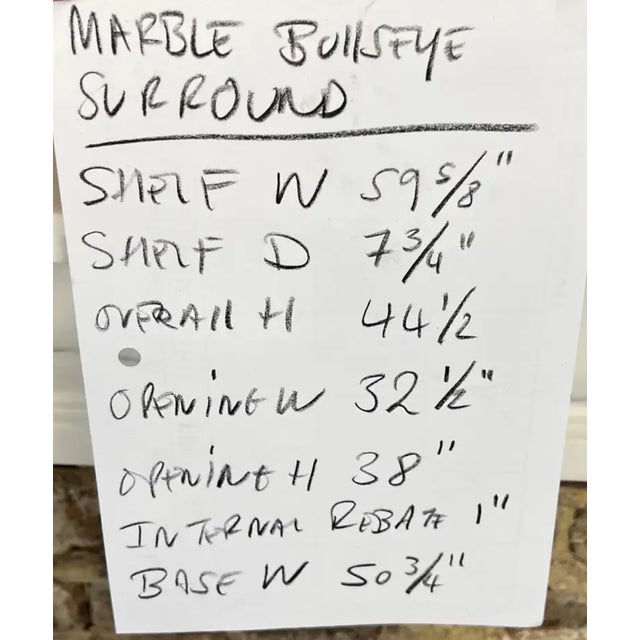 MARBLE BUllSEYE
SURROUND
SHELF W 59 5/8"
SHELF D 7 3/4"
OVERAll H 44 1/2
OPENiNG W 32 1/2"
OPENiNG H 38"
INTERNAL REBATE 1"
BASE W 50 3/4"